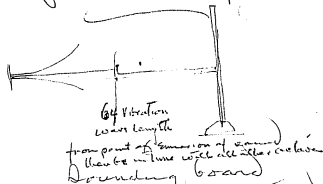 64 Vibration
wave length
from point of Emission of sound
in tune with all other octaves
Sounding board